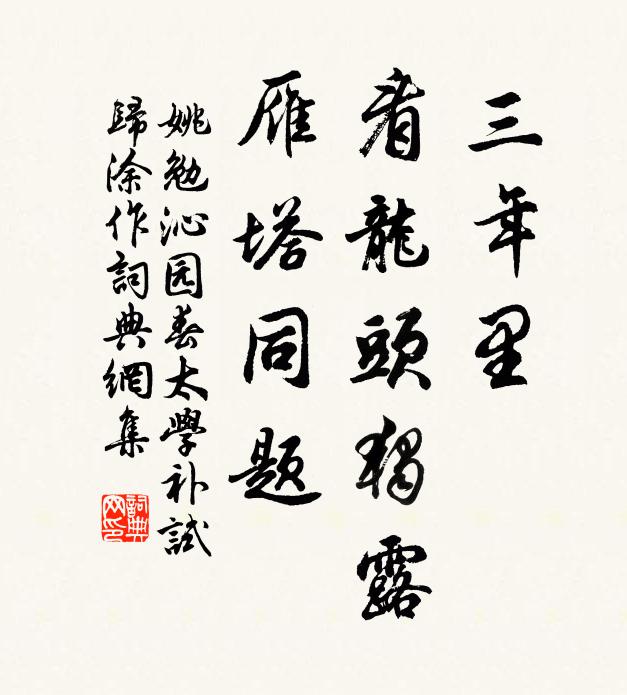 三年里
看龍頭獨露
雁塔同题
姚勉沁园春太學补試
歸涂作詞典網集
詞典網印